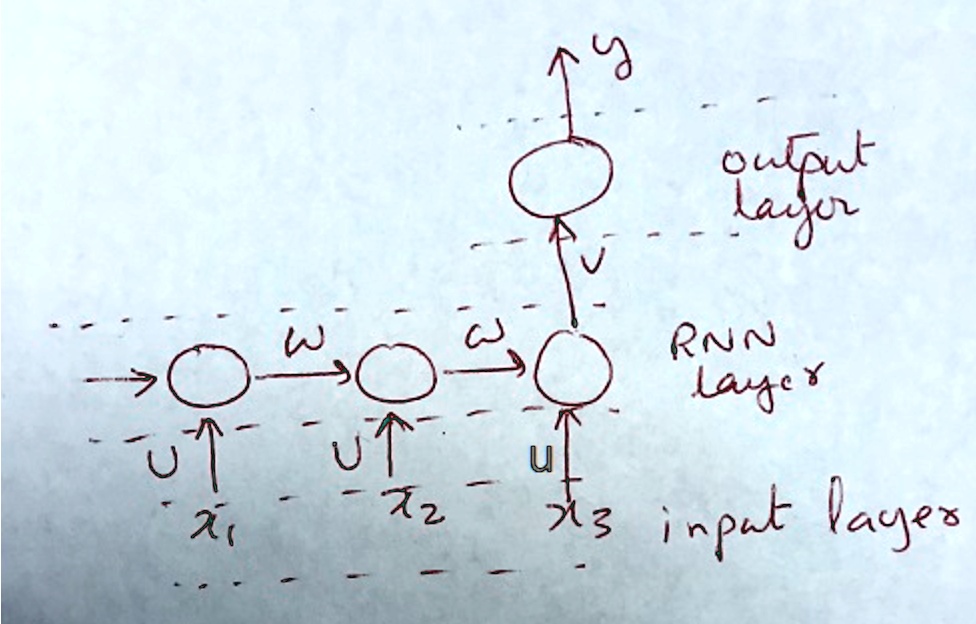 y
output
layer
V
W
W
RNN
layer
U
U
u
x1
x2
x3
input layer